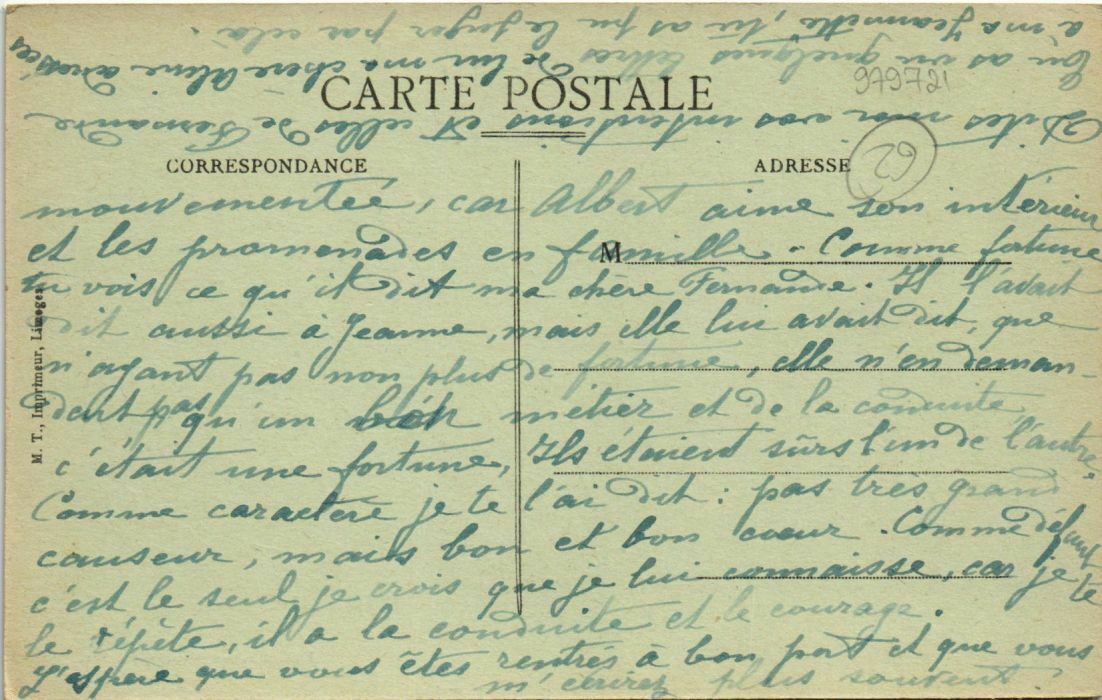 CARTE POSTALE
979721
62
CORRESPONDANCE
ADRESSE
M
M. T., Imprimeur, Limoges
mouvementée, car Albert aime son intérieur
et les promenades en famille. Comme fortune
tu vois ce qu'il dit ma chère Fernande. Il l'avait
dit aussi à Jeanne, mais elle lui avait dit, que
n'ayant pas non plus de fortune, elle n'en deman-
dait pas qu'un bon métier et de la conduite
c'était une fortune, Ils étaient sûrs l'un de l'autre.
Comme caractère je te l'ai dit : pas très grand
causeur, mais bon et bon cœur. Comme défaut
c'est le seul je crois que je lui connaisse, car je te
le répète, il a la conduite et le courage.
J'espère que vous êtes rentrés à bon port et que vous
m'écrirez plus souvent.
Dites moi vos intentions et celles de Fernande
Tu as vu quelques lettres de lui ma chère Aline adressées
à ma Jeannette, tu as pu le juger par cela.